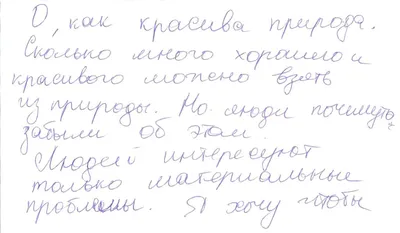 О, как красива природа.
Сколько много хорошего и
красивого можно взять
из природы. Но люди почему-то
забыли об этом.
Людей интересуют
только материальные
проблемы. Я хочу чтобы